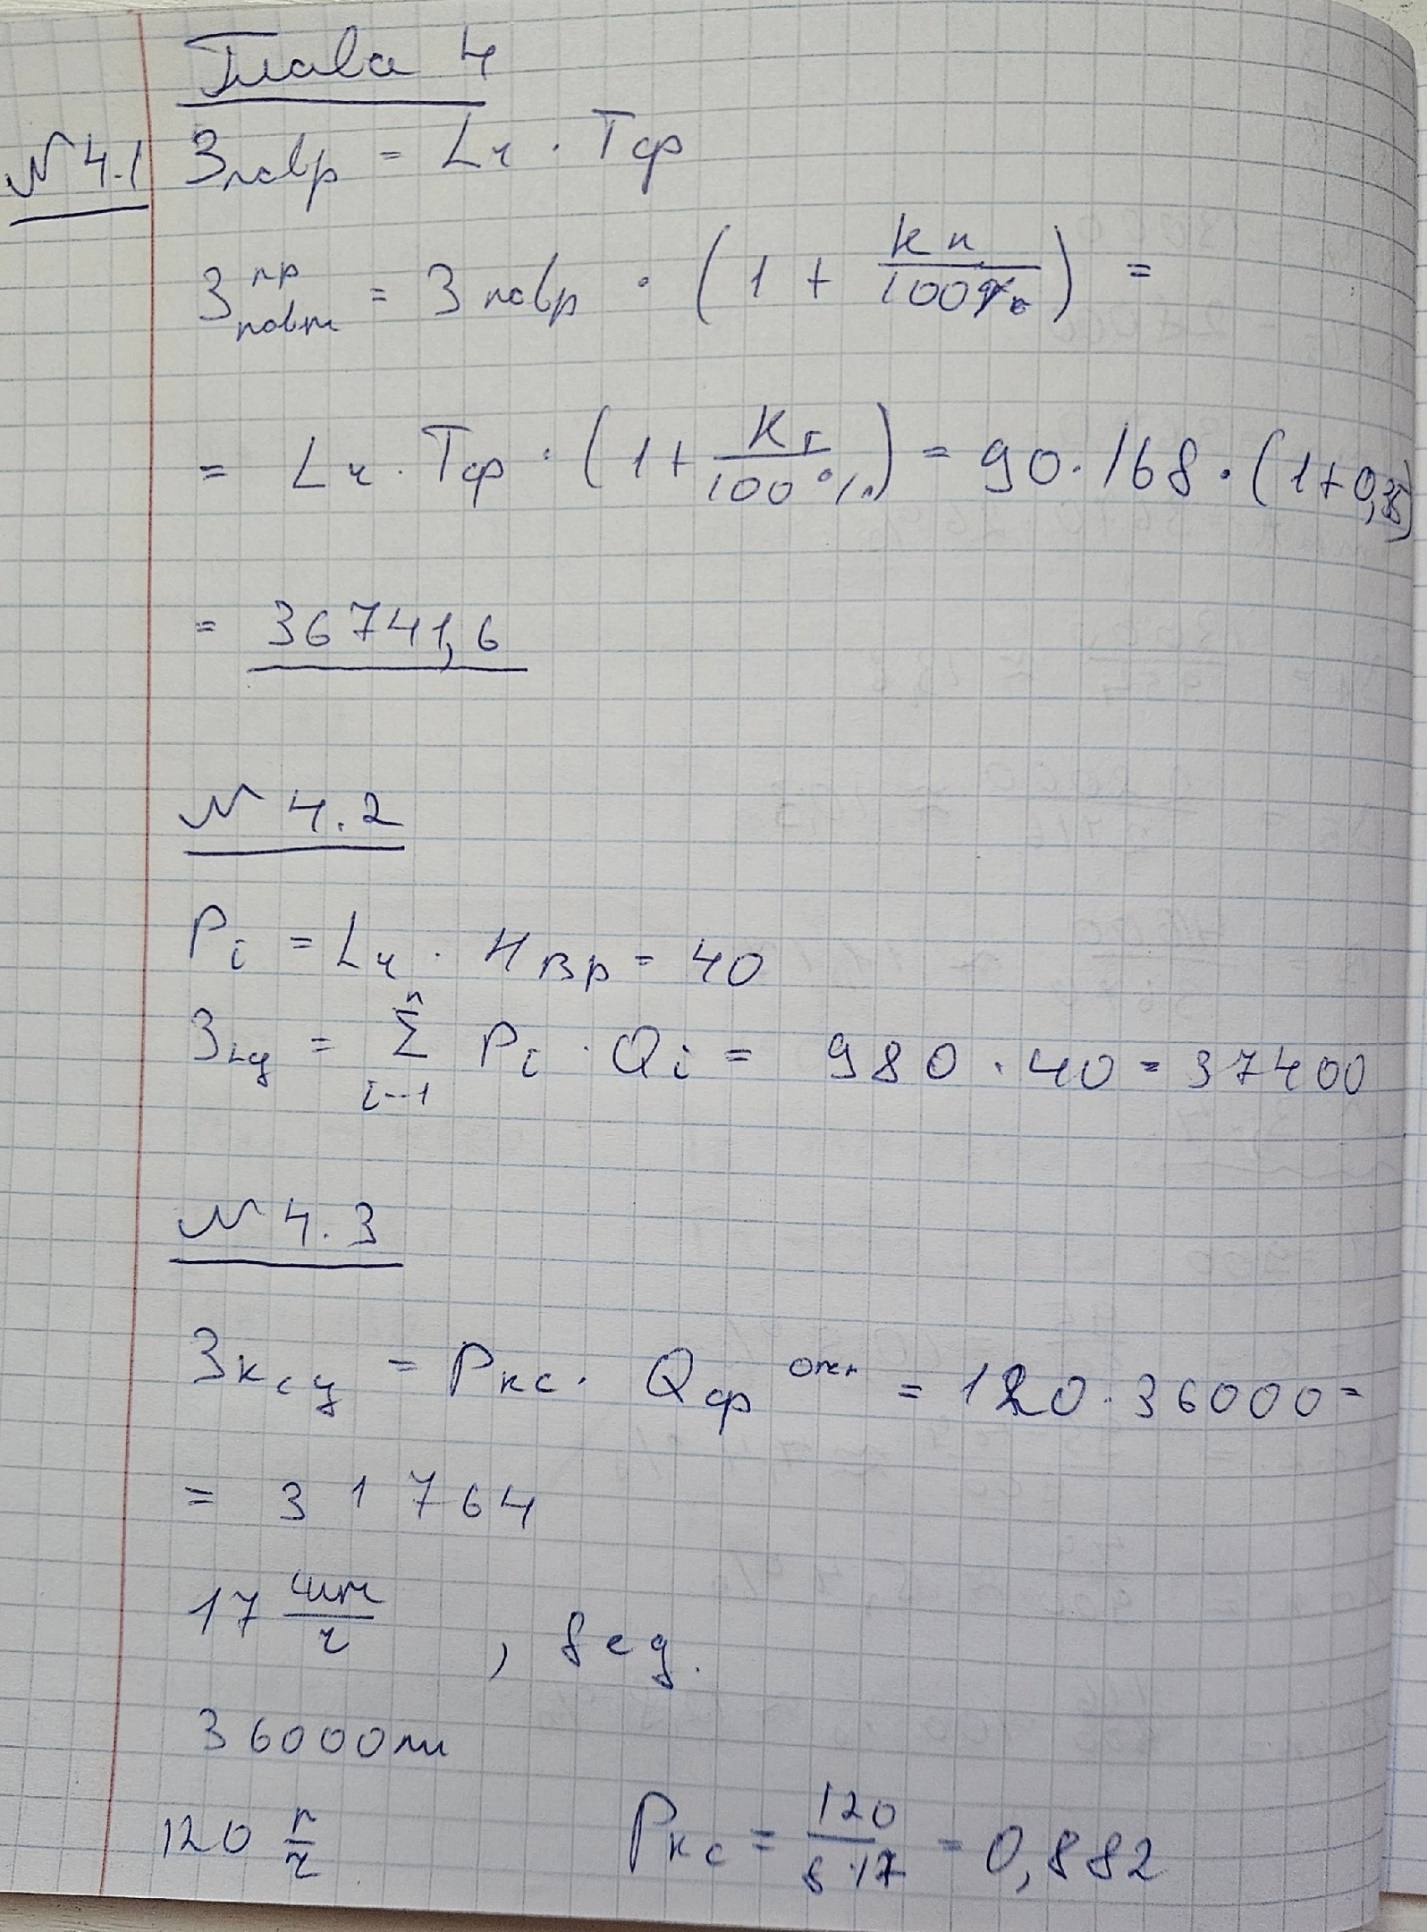 Глава 4
№ 4.1 Зповр = Lч · Тср
З пр повт = Зповр · (1 + kп / 100%) =
= Lч · Тср · (1 + Kт / 100%) = 90 · 168 · (1 + 0,35)
= 36741,6
№ 4.2
Pi = Lч · Нвр = 40
Зсд = n Σ i-1 Pi · Qi = 980 · 40 = 37400
№ 4.3
Зксд = Ркс · Qср = 120 · 36000 =
= 31764
17 шт/ч , 8 ед.
36000
120 r/ч Ркс = 120 / 8·17 = 0,882